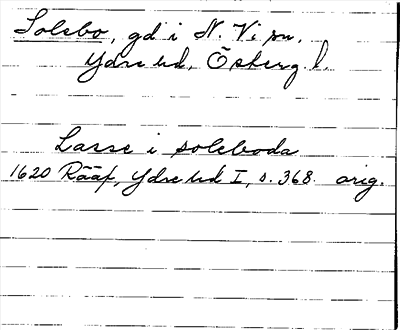 Solebo, gd i N. Vi sn,
Ydre hd, Östergl.
Lasse i soleboda
1620 Rääf, Ydre hd I, s. 368. orig.